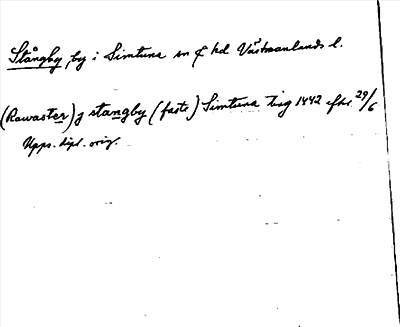 Stångby by i Simtuna sn o hd Västmanlands l.
(Rawaster) j stangby (faste) Simtuna ting 1442 efter 29/6
Upps. dipl. orig.